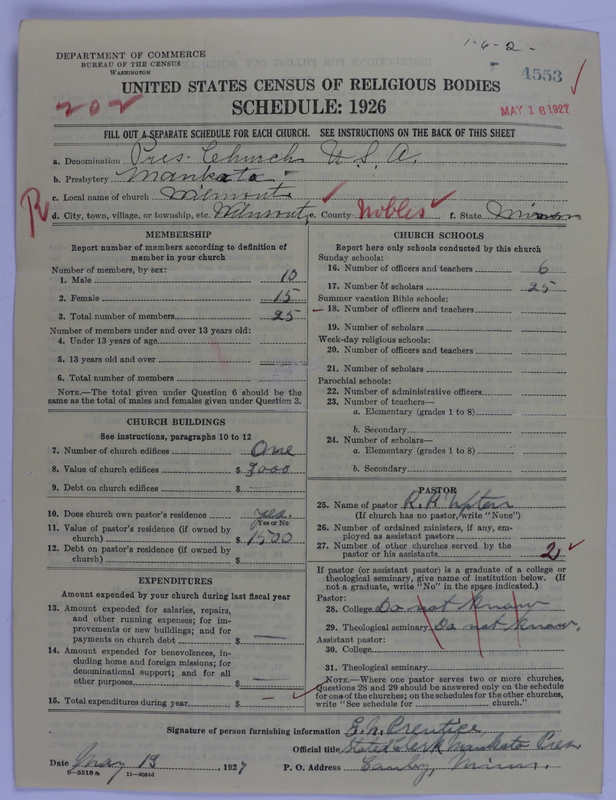 1-6-2-
DEPARTMENT OF COMMERCE
BUREAU OF THE CENSUS
WASHINGTON
4553
UNITED STATES CENSUS OF RELIGIOUS BODIES
202
SCHEDULE: 1926
MAY 16 1927
FILL OUT A SEPARATE SCHEDULE FOR EACH CHURCH. SEE INSTRUCTIONS ON THE BACK OF THIS SHEET
a. Denomination Pres. Church U.S.A.
b. Presbytery Mankato
c. Local name of church Wilmont
R
d. City, town, village, or township, etc. Wilmont, e. County Nobles f. State Minn
MEMBERSHIP
Report number of members according to definition of
member in your church
Number of members, by sex:
1. Male 10
2. Female 15
3. Total number of members 25
Number of members under and over 13 years old:
4. Under 13 years of age
5. 13 years old and over
6. Total number of members
NOTE.—The total given under Question 6 should be
same as the total of males and females given under Question 3.
CHURCH BUILDINGS
See instructions, paragraphs 10 to 12
7. Number of church edifices One
8. Value of church edifices $ 3000
9. Debt on church edifices $
10. Does church own pastor's residence yes
Yes or No
11. Value of pastor's residence (if owned by
church) $ 1500
12. Debt on pastor's residence (if owned by
church) $
EXPENDITURES
Amount expended by your church during last fiscal year
13. Amount expended for salaries, repairs,
and other running expenses; for im-
provements or new buildings; and for
payments on church debt $ —
14. Amount expended for benevolences, in-
cluding home and foreign missions; for
denominational support; and for all
other purposes $ —
15. Total expenditures during year $ —
CHURCH SCHOOLS
Report here only schools conducted by this church
Sunday schools:
16. Number of officers and teachers 6
17. Number of scholars 25
Summer vacation Bible schools:
18. Number of officers and teachers
19. Number of scholars
Week-day religious schools:
20. Number of officers and teachers
21. Number of scholars
Parochial schools:
22. Number of administrative officers
23. Number of teachers—
a. Elementary (grades 1 to 8)
b. Secondary
24. Number of scholars—
a. Elementary (grades 1 to 8)
b. Secondary
PASTOR
25. Name of pastor R. H. Upton
(If church has no pastor, write "None")
26. Number of ordained ministers, if any, em-
ployed as assistant pastors
27. Number of other churches served by the
pastor or his assistants 2
If pastor (or assistant pastor) is a graduate of a college or
theological seminary, give name of institution below. (If
not a graduate, write "No" in the space indicated.)
Pastor:
28. College Do not know
29. Theological seminary Do not know,
Assistant pastor:
30. College
31. Theological seminary
NOTE.—Where one pastor serves two or more churches,
Questions 28 and 29 should be answered only on the schedule
for one of the churches; on the schedules for the other churches,
write "See schedule for church."
Signature of person furnishing information E. N. Prentice
Official title Stated Clerk Mankato Pres
Date May 13, 1927 P. O. Address Canby, Minn.
8-5518a 11-9084a